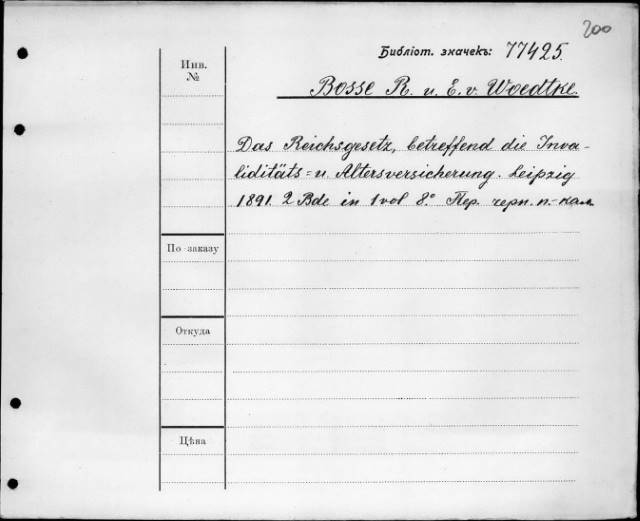 200
Библіот. значекъ: 77425.
Инв. №
Bosse R. u. E. v. Woedtke.
Das Reichsgesetz, betreffend die Inva-
liditäts= u. Altersversicherung. Leipzig
1891. 2 Bde in 1 vol 8.° Пер. черн. п.-кал
По заказу
Откуда
Цѣна